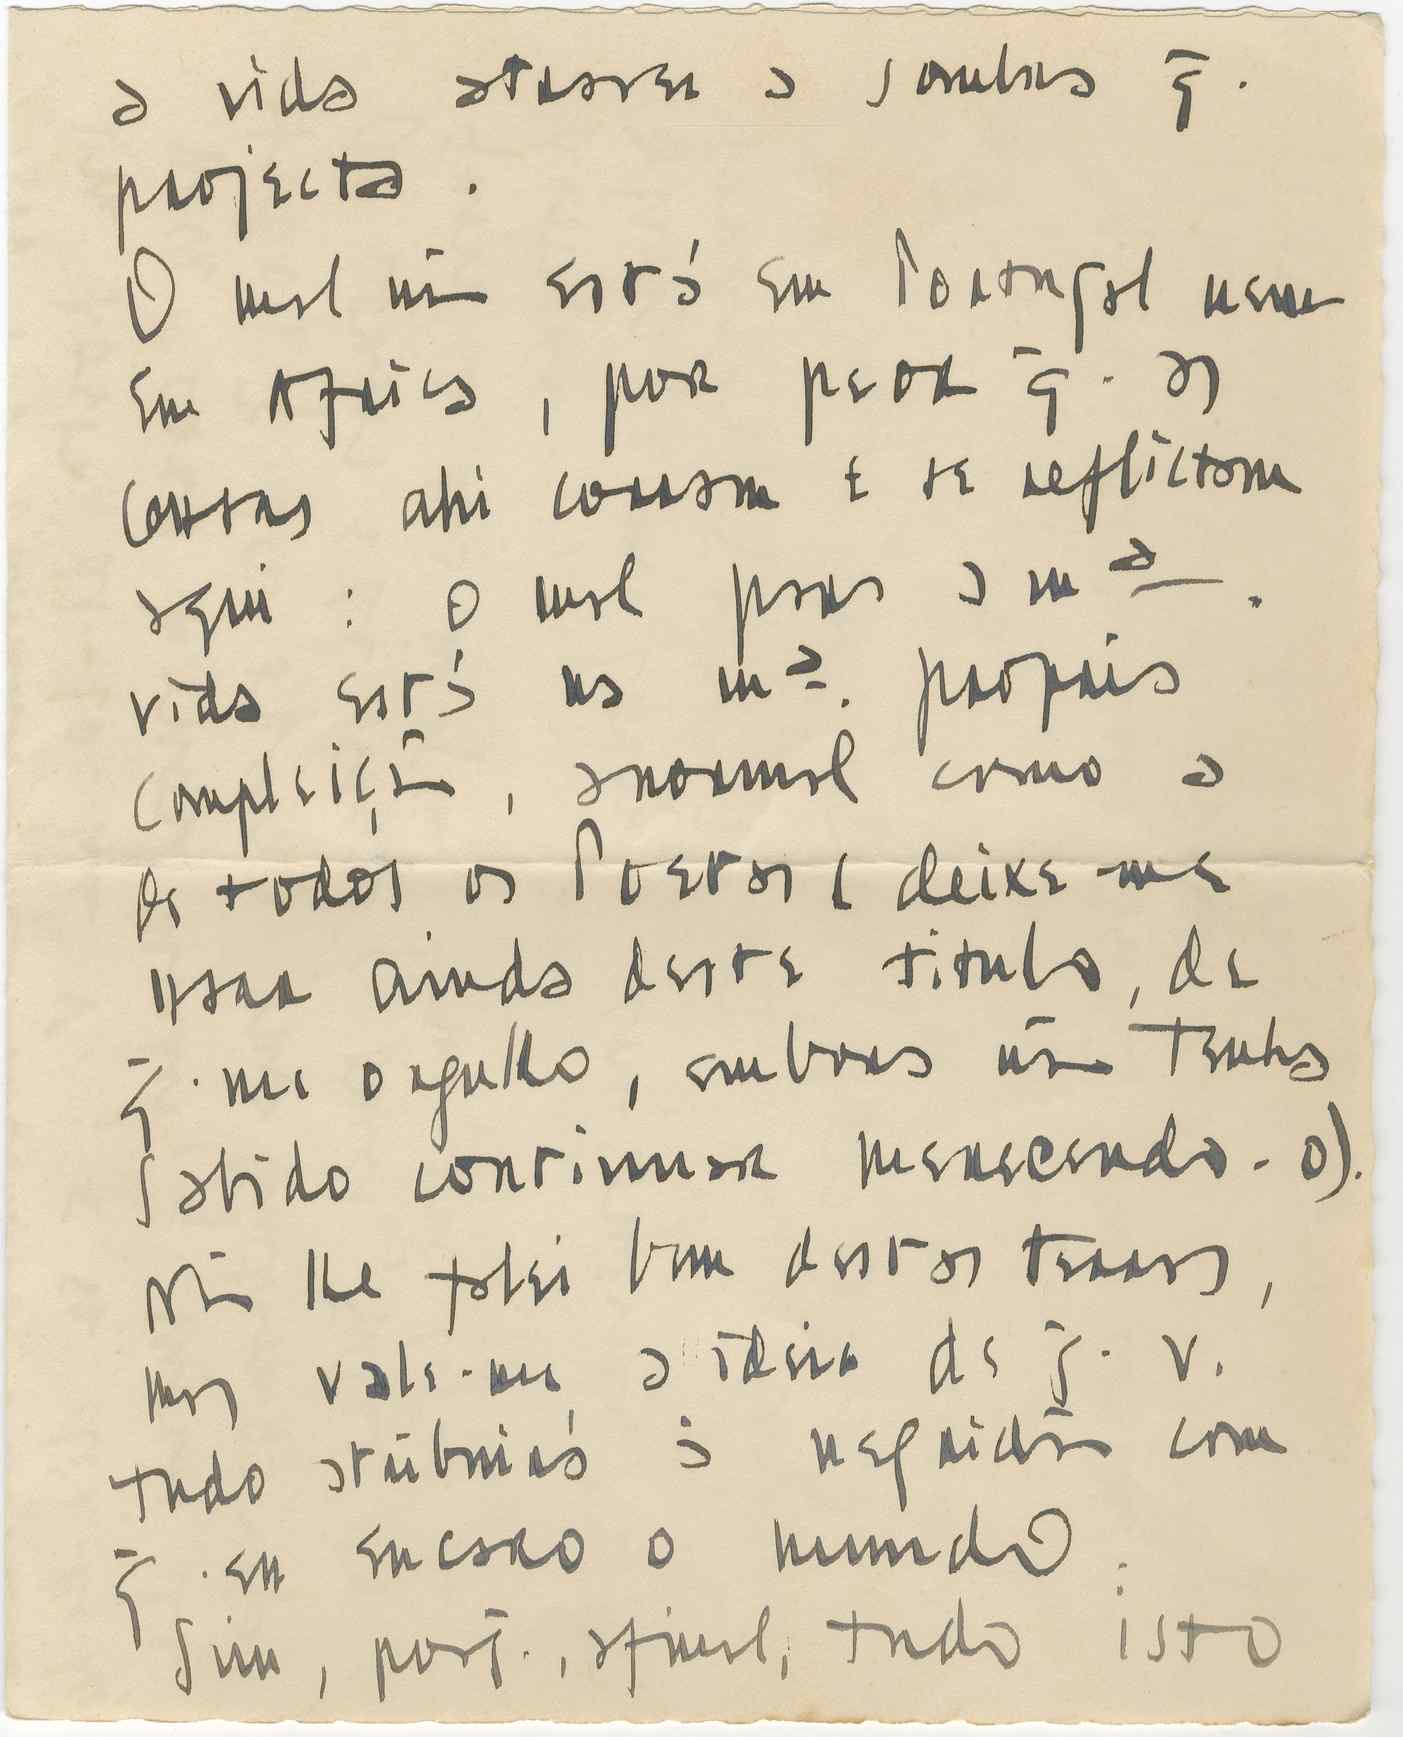 a vida atravez a sombra q̄.
projecta.
O mal nã está em Portugal nem
em Africa, por peor q̄. as
cousas ahi corram e se reflictam
aqui: o mal para a mª.
vida está na mª. propria
compleiçã, anormal como a
de todos os Poetas (deixe-me
usar ainda deste titulo, de
q̄. me orgulho, embora nã tenha
sabido continuar merecendo-o).
Nã lhe falei bem destas terras,
mas vale-me a ideia de q̄. v.
tudo atribuirá á negridã com
q̄. eu encaro o mundo.
Sim, porq̄., afinal, tudo isto